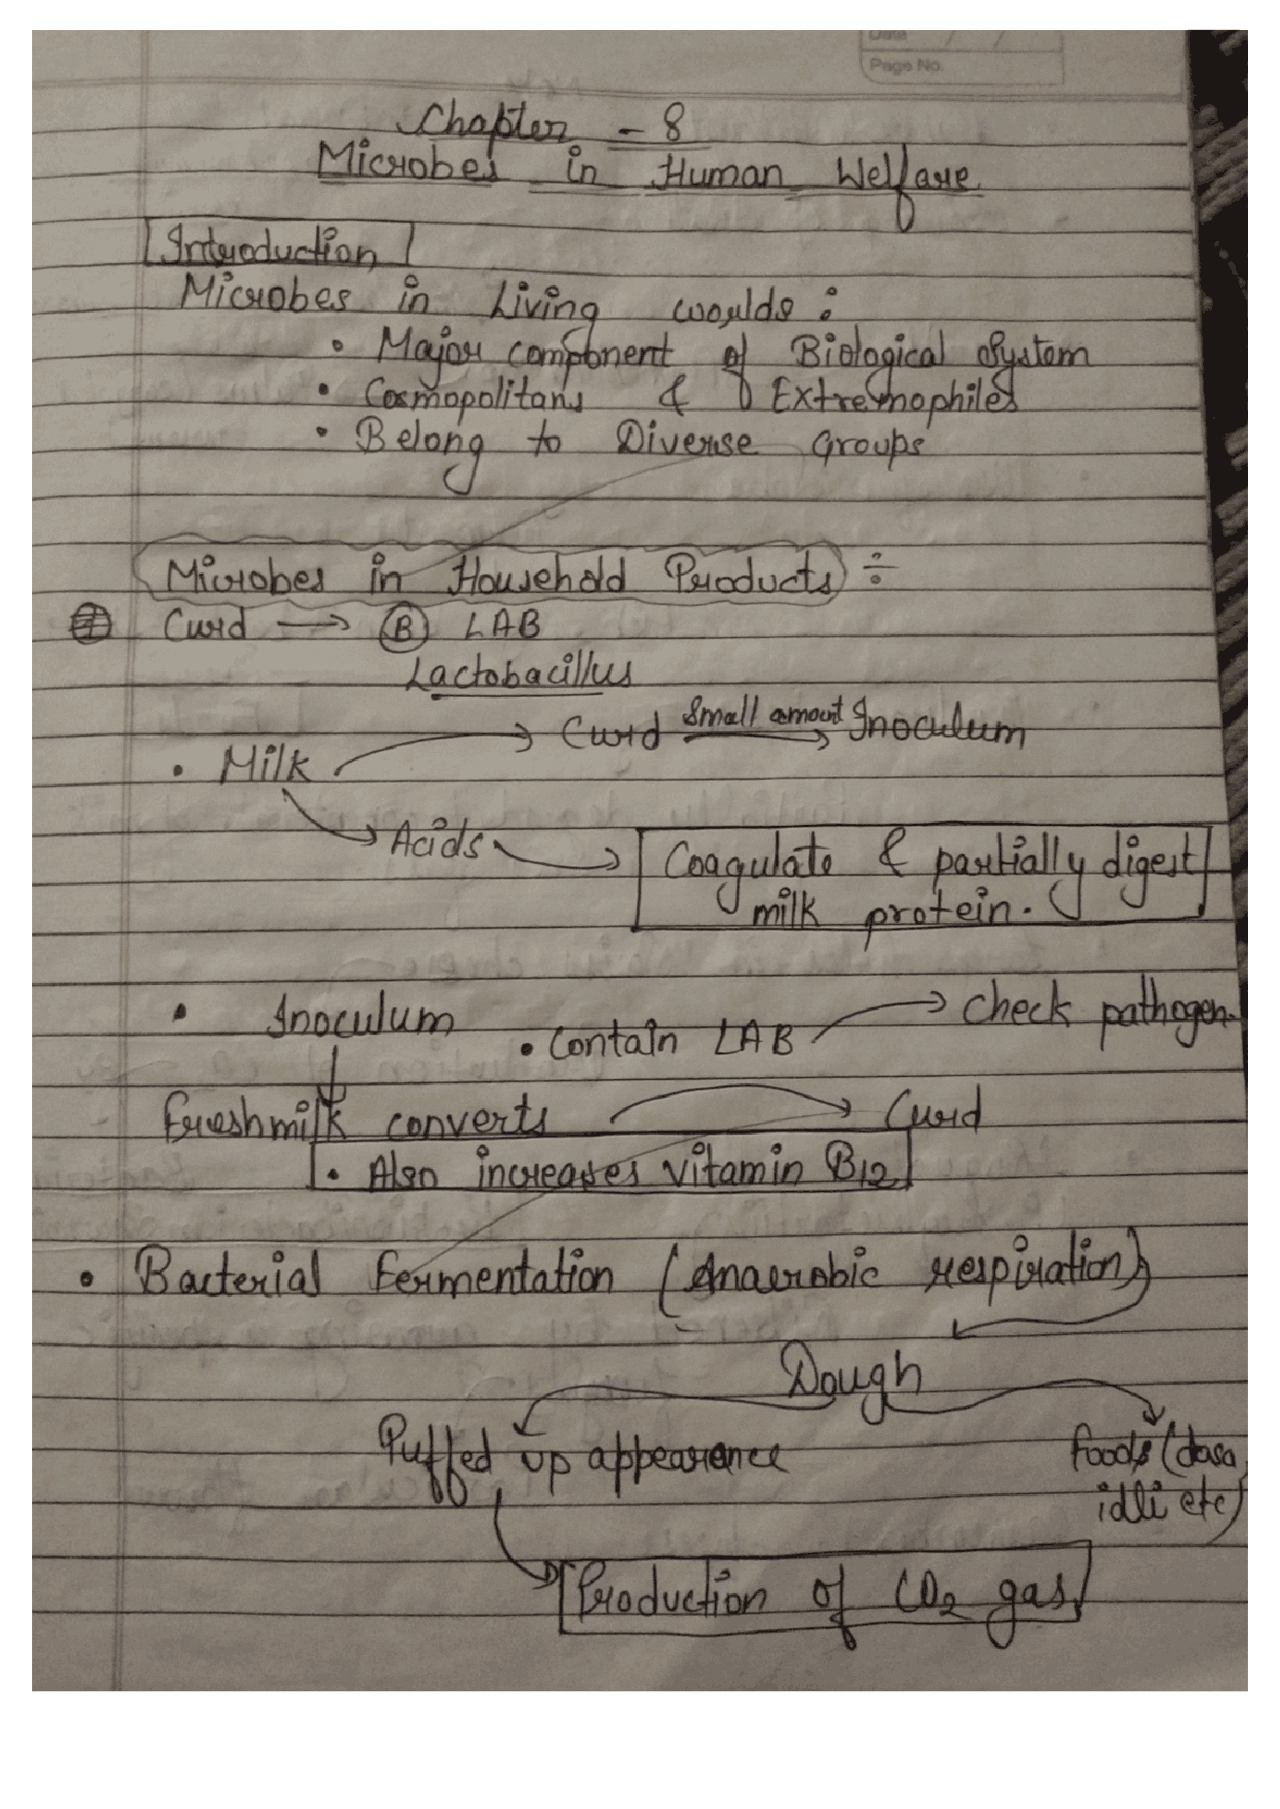 Date / /
Page No.
Chapter - 8
Microbes in Human Welfare
Introduction
Microbes in Living worlds :
• Major component of Biological System
• Cosmopolitans & Extremophiles
• Belong to Diverse Groups
Microbes in Household Products ÷
Curd → Ⓑ LAB
Lactobacillus
• Milk → Curd small amount → Inoculum
→ Acids → Coagulate & partially digest
milk protein.
• Inoculum • Contain LAB → Check pathogen
↓
Freshmilk converts → Curd
• Also increases vitamin B12
• Bacterial Fermentation (Anaerobic respiration)
Dough
Puffed up appearance
Foods (dosa,
idli etc)
Production of CO2 gas